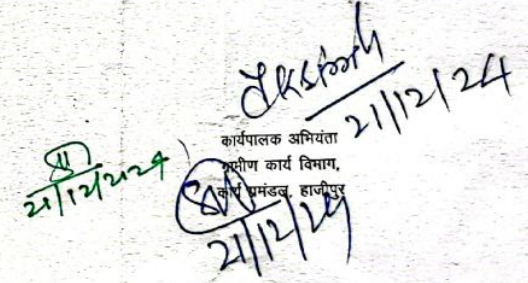 21/12/24
कार्यपालक अभियंता
ग्रामीण कार्य विभाग,
कार्य प्रमंडल, हाजीपुर
21/12/2024
21/12/24